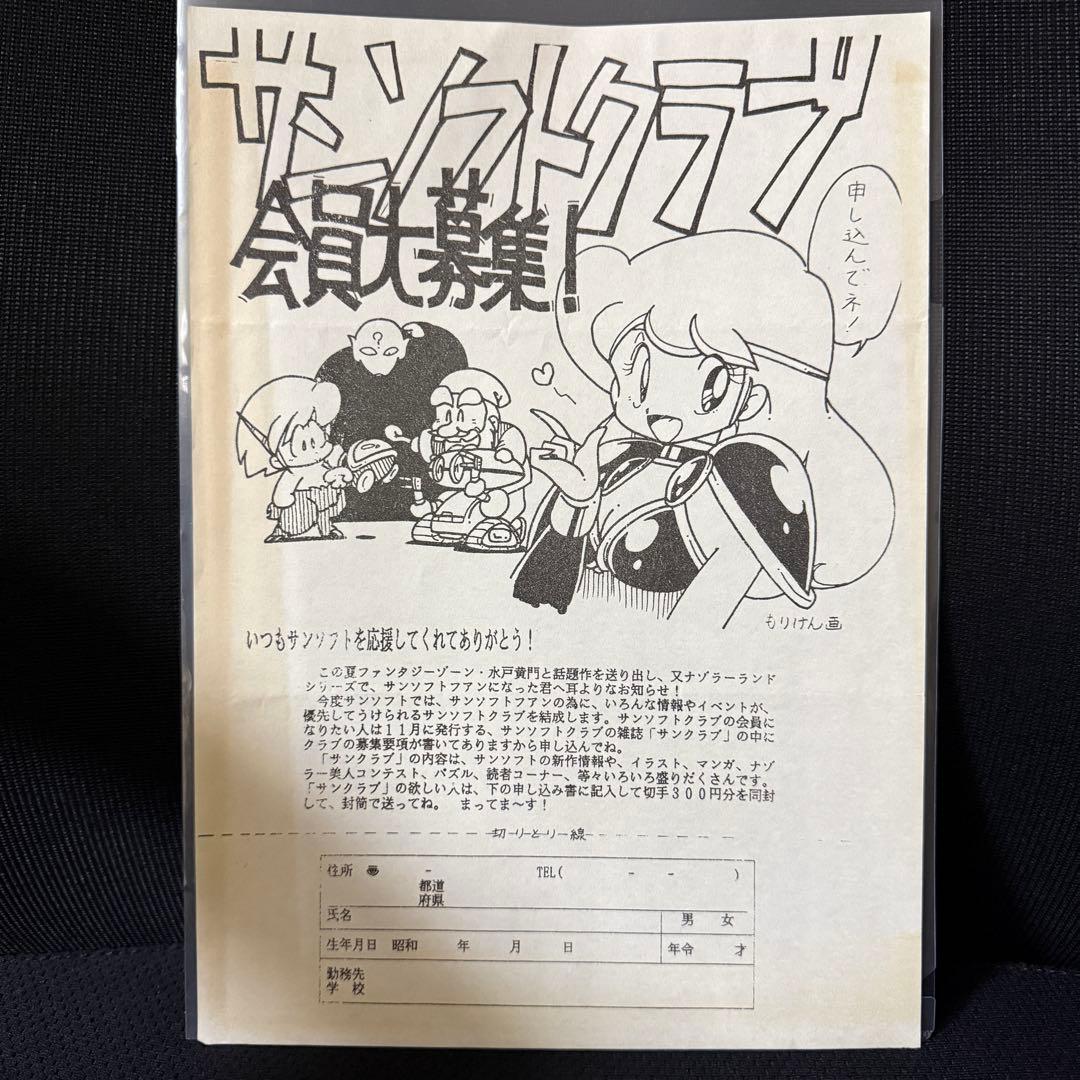 サンソフトクラブ
会員大募集!
申し込んでネ!
?
もりけん画
いつもサンソフトを応援してくれてありがとう!
この夏ファンタジーゾーン・水戸黄門と話題作を送り出し、又ナゾラーランド
シリーズで、サンソフトフアンになった君へ耳よりなお知らせ!
今度サンソフトでは、サンソフトフアンの為に、いろんな情報やイベントが、
優先してうけられるサンソフトクラブを結成します。サンソフトクラブの会員に
なりたい人は11月に発行する、サンソフトクラブの雑誌「サンクラブ」の中に
クラブの募集要項が書いてありますから申し込んでね。
「サンクラブ」の内容は、サンソフトの新作情報や、イラスト、マンガ、ナゾ
ラー美人コンテスト、パズル、読者コーナー、等々いろいろ盛りだくさんです。
「サンクラブ」の欲しい人は、下の申し込み書に記入して切手300円分を同封
して、封筒で送ってね。 まってま〜す!
切りとり線
住所 〠 - TEL( - - )
都道
府県
氏名 男 女
生年月日 昭和 年 月 日 年令 才
勤務先
学 校